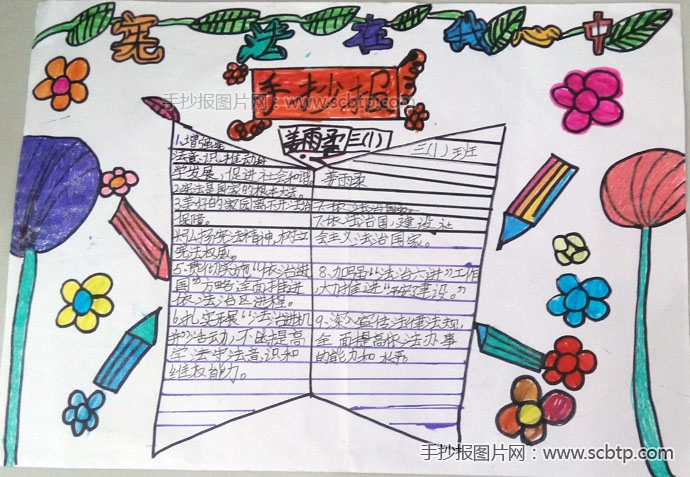 宪法在我心中
手抄报
手抄报图片网:www.scbtp.com
姜雨柔 三(1)
1.增强宪
法意识,推动科
学发展,促进社会和谐
2.宪法是国家的根本大法。
3.美好的家园离不开法治
保障。
4.弘扬宪法精神,树立
宪法权威。
5.贯彻实施“依法治
国”方略全面推进
依法治区进程。
6.扎实开展“法治进机
关”活动,不断提高
学法守法意识和
维权能力。
三(1)班
姜雨柔
7.依法治国,建设社
会主义法治国家。
8.加强“法治六进”工作
大力推进“平安建设。”
9.深入宣传法律法规,
全面提高依法办事
的能力和水平。
手抄报图片网:www.scbtp.com